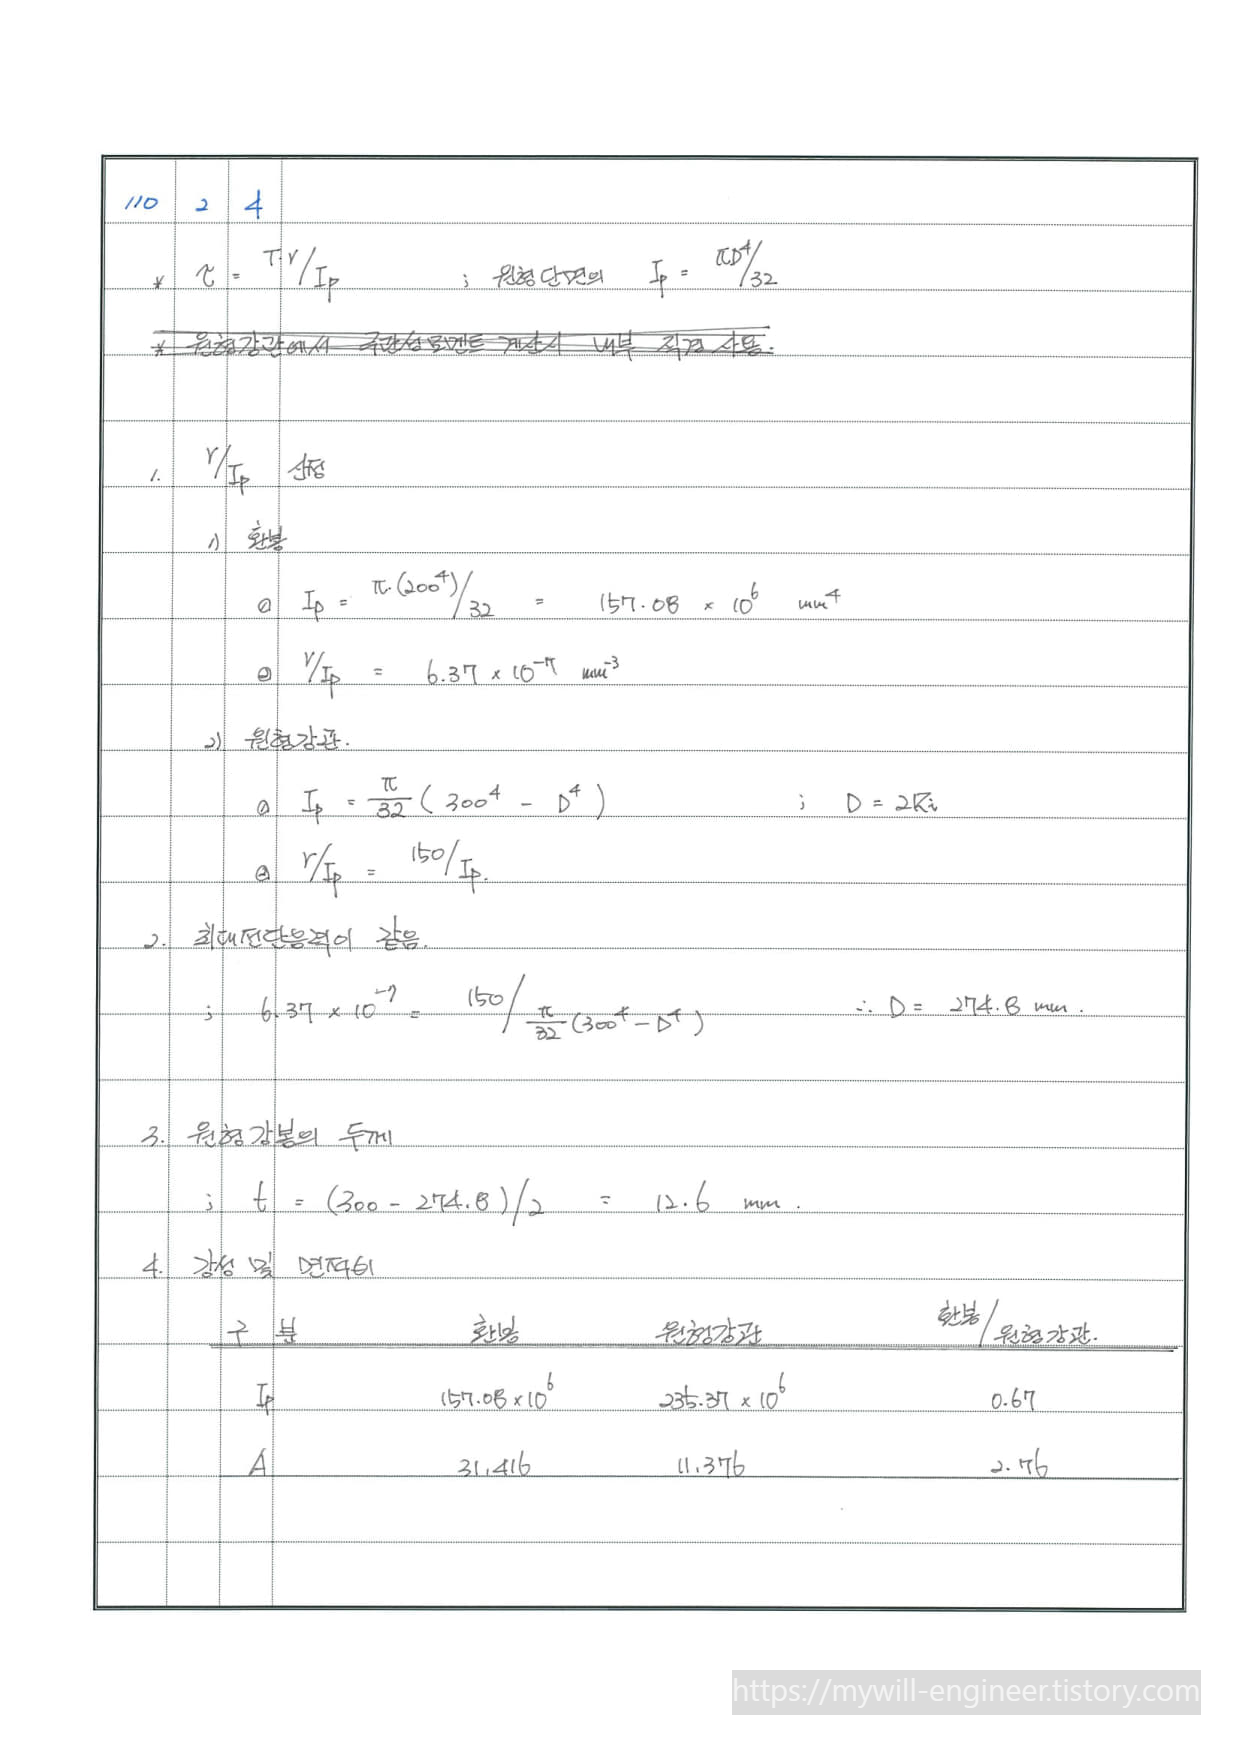 110 2 4
* τ = T·r/Ip ; 원형단면의 Ip = πD⁴/32
* 원형강관에서 극관성모멘트 계산시 내부 직경 사용.
1. r/Ip 산정
1) 환봉
① Ip = π·(200⁴)/32 = 157.08 × 10⁶ mm⁴
② r/Ip = 6.37 × 10⁻⁷ mm⁻³
2) 원형강관.
① Ip = π/32 ( 300⁴ - D⁴ ) ; D = 2Ri
② r/Ip = 150/Ip.
2. 최대전단응력이 같음.
; 6.37 × 10⁻⁷ = 150/π/32 (300⁴ - D⁴) ∴ D = 274.8 mm.
3. 원형강봉의 두께
; t = (300 - 274.8)/2 = 12.6 mm.
4. 강성 및 면적비
구 분 환봉 원형강관 환봉/원형강관.
Ip 157.08×10⁶ 235.37 × 10⁶ 0.67
A 31,416 11,376 2.76
https://mywill-engineer.tistory.com